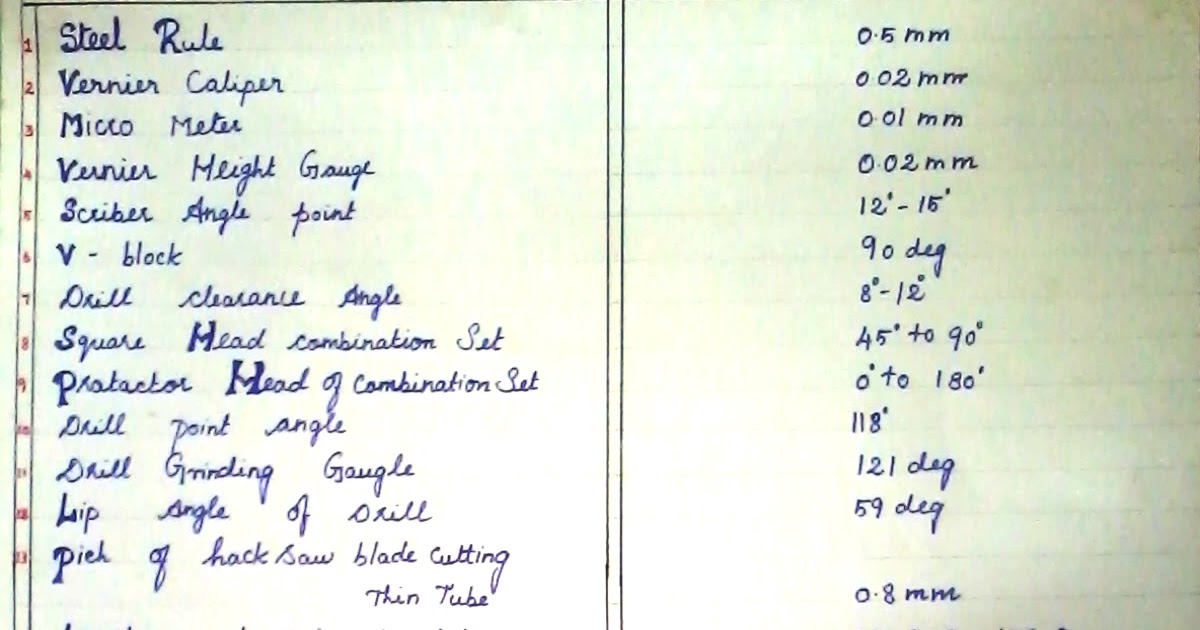 1 Steel Rule 0.5 mm
2 Vernier Caliper 0.02 mm
3 Micro Meter 0.01 mm
4 Vernier Height Gauge 0.02 mm
5 Scriber Angle point 12° - 15°
6 V - block 90 deg
7 Drill clearance Angle 8° - 12°
8 Square Head combination Set 45° to 90°
9 Pratactor Head of combination Set 0° to 180°
10 Drill point angle 118°
11 Drill Grinding Gaugle 121 deg
12 Lip Angle of Drill 59 deg
13 Pich of hack saw blade cutting
Thin Tube 0.8 mm